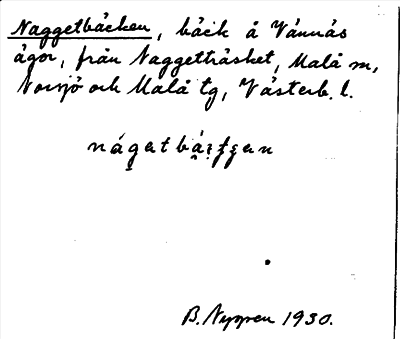 Naggetbäcken, bäck å Vännäs
ägor, från Naggetträsket, Malå m,
Norsjö och Malå tg, Västerb. l.
nágatbä
B. Nygren 1930.